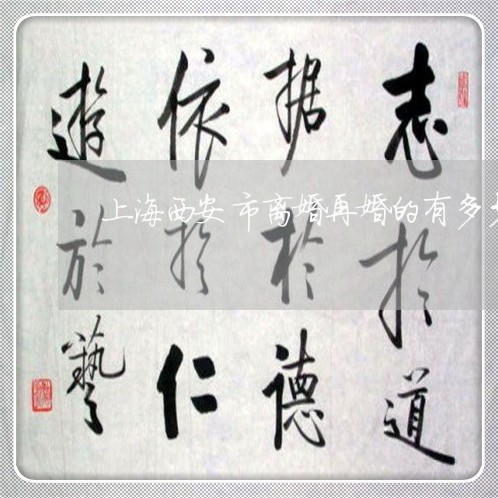 志於道
据於德
依於仁
遊於藝
上海西安市离婚再婚的有多